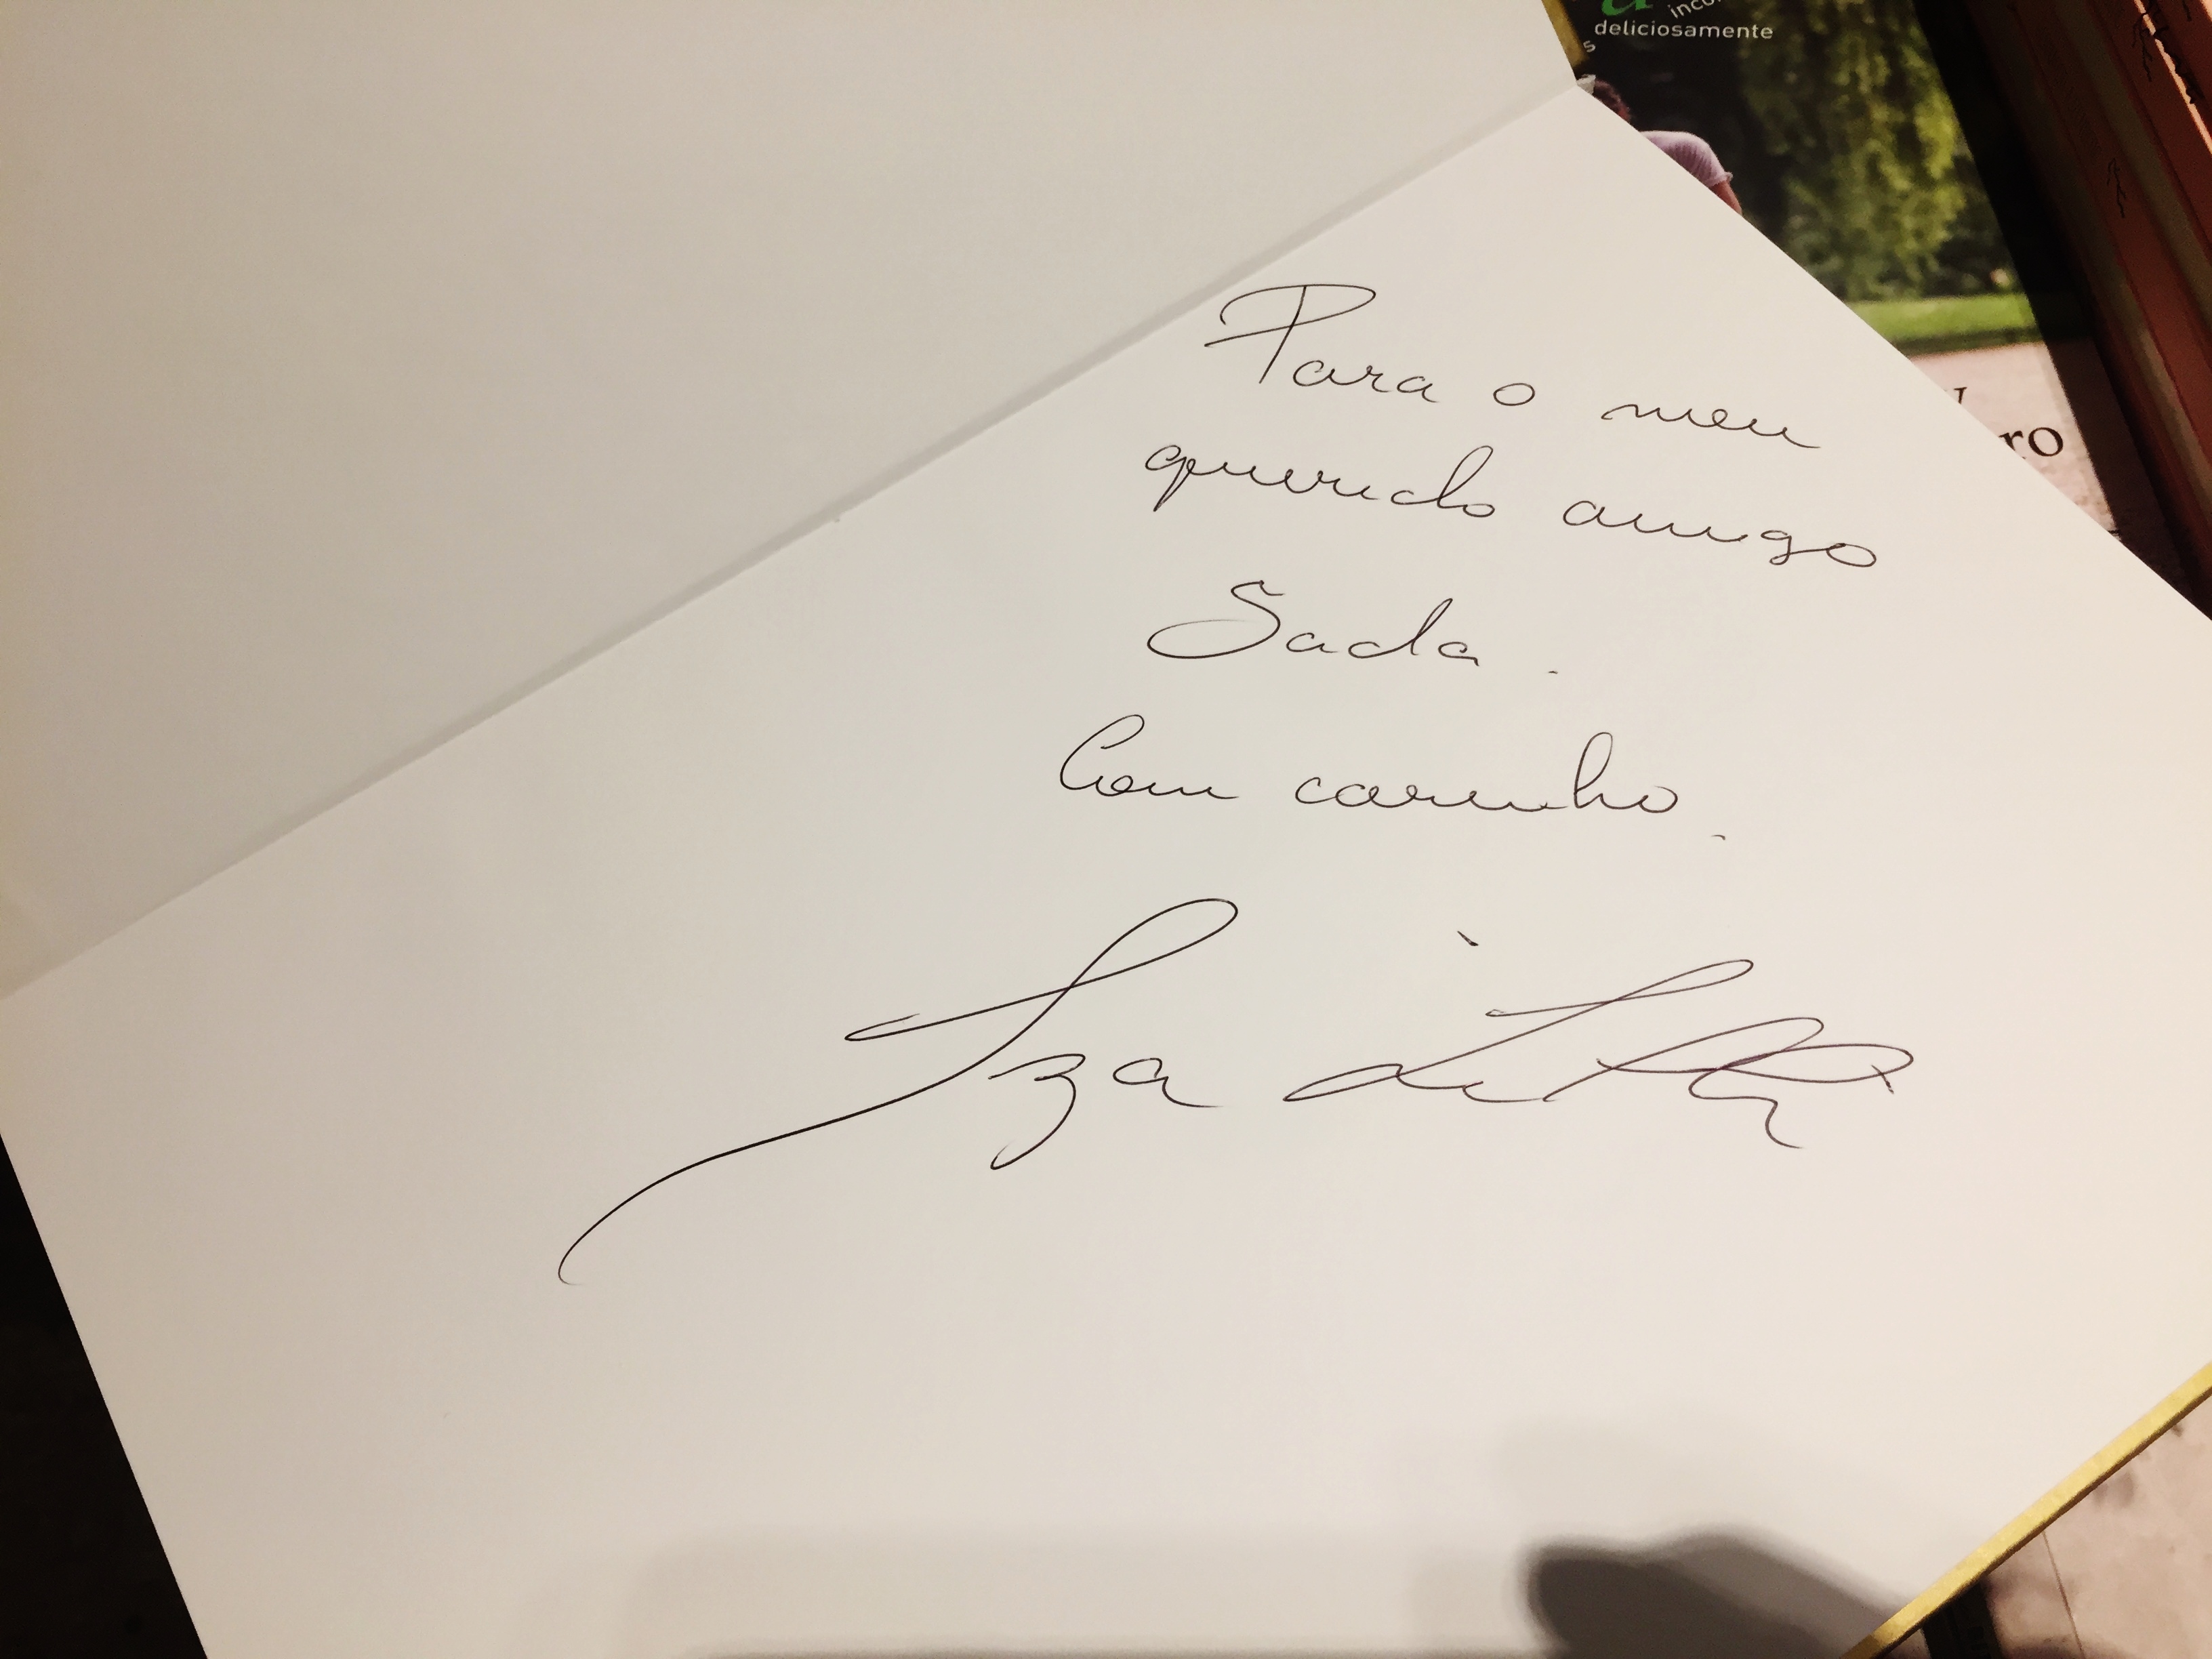 deliciosamente
Para o meu
querido amigo
Sada.
Com carinho.
Iza
ro